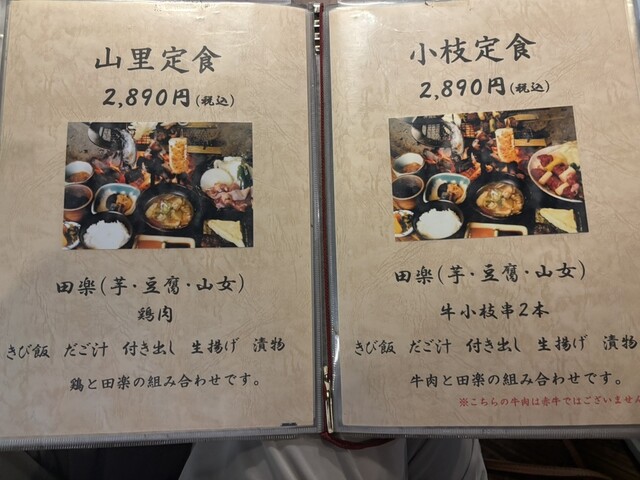 山里定食
2,890円(税込)
田楽(芋・豆腐・山女)
鶏肉
きび飯 だご汁 付き出し 生揚げ 漬物
鶏と田楽の組み合わせです。
小枝定食
2,890円(税込)
田楽(芋・豆腐・山女)
牛小枝串2本
きび飯 だご汁 付き出し 生揚げ 漬物
牛肉と田楽の組み合わせです。
※こちらの牛肉は赤牛ではございません